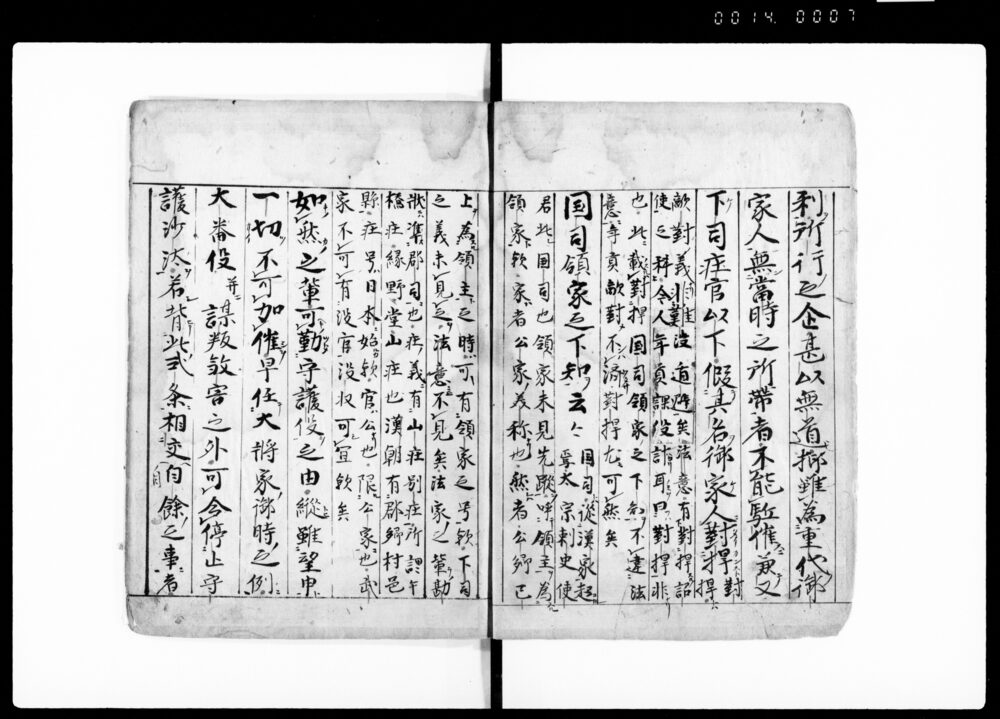 0014.0007
利所行之企甚以無道拠雖為重代御
家人無當時之所帯者不能駈催兼又
下司庄官以下假其名御家人對捍
對捍ハ
敵對義
使之科令人年貢課役計耳曰對捍非
也此載對捍国司領家之下知不遵法
意年貢敵對不済對捍尤可然矣
国司領家之下知云々
国司従漢家起
宗刺史使
君此国司也領家未見先蹤呼領主為
領家欤家者公家義称也然者公卿已
上為領主之時可有領家之号欤下司
之義未見之法意不見矣法家之筆勘
状準郡司也庄義有山庄別庄所謂午
橋庄緑野堂山庄也漢朝有郡郷村邑
縣庄号日本始欤官公也限公家也武
家不可有没官没収可宜欤矣
如然之輩可勤守護役之由縦雖望申
一切不可加催早任大将家御時之例
大番役并謀叛殺害之外可令停止守
護沙汰若背此式条相交自餘之事者